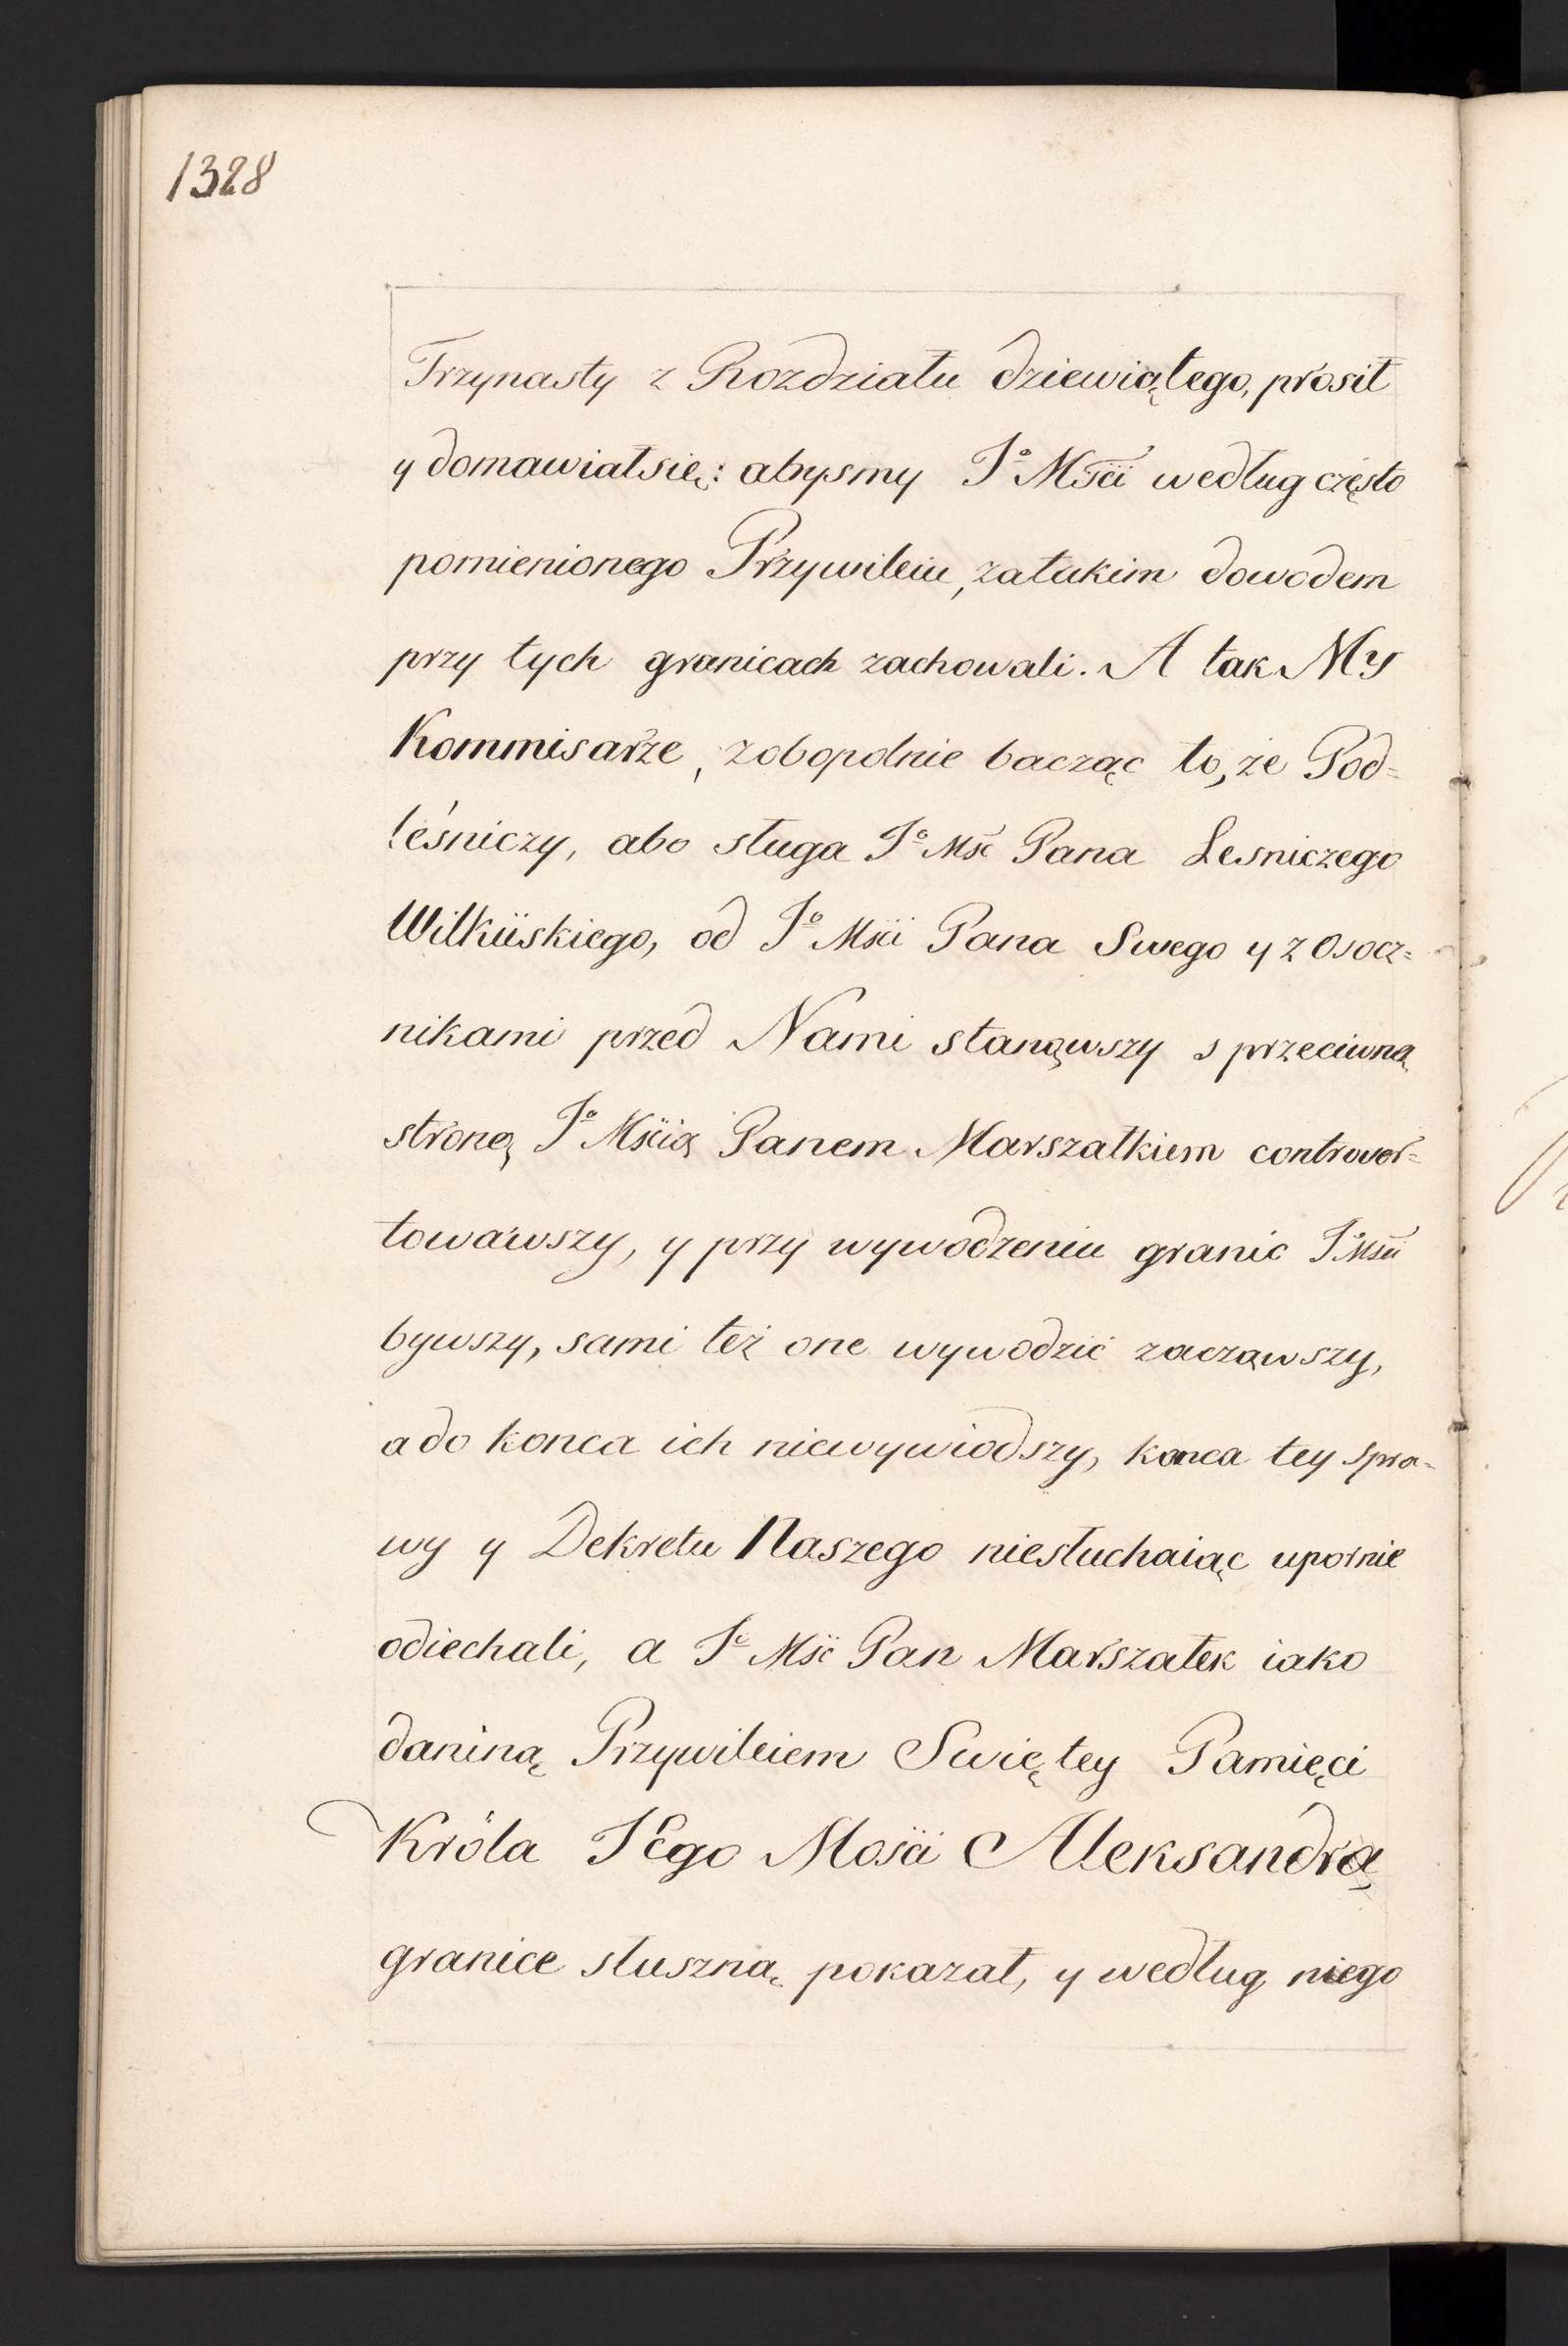 1328
Trzynasty z Rozdziału dziewiątego, prosił
y domawiałsię: abysmy Jº Mści według często
pomienionego Przywileiu, zatakim dowodem
przy tych granicach zachowali. A tak My
Kommisarze, zobopolnie bacząc to, że Pod=
leśniczy, abo sługa Jº Mść Pana Lesniczego
Wilkiiskiego, od Jº Mści Pana Swego y z Osocz=
nikami przed Nami stanąwszy s przeciwną
stroną Jº Mścią Panem Marszałkiem controver=
towawszy, y przy wywodzeniu granic Jº Mści
bywszy, sami też one wywodzić zacząwszy,
a do konca ich niewywiodszy, konca tey spra=
wy y Dekretu Naszego niesłuchaiąc upornie
odiechali, a Jº Mść Pan Marszałek iako
daniną Przywileiem Swiętey Pamięci
Króla JEgo Mości Aleksandrą
granice słuszną pokazał, y według niego